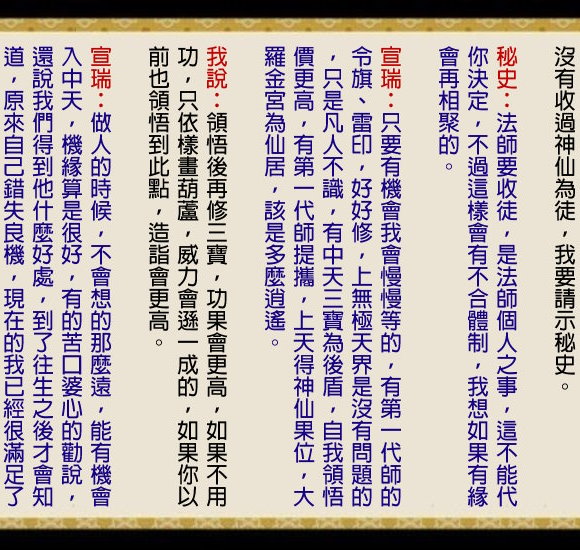 沒有收過神仙為徒，我要請示秘史。
秘史：法師要收徒，是法師個人之事，這不能代
你決定，不過這樣會有不合體制，我想如果有緣
會再相聚的。
宣瑞：只要有機會我會慢慢等的，有第一代師的
令旗、雷印，好好修，上無極天界是沒有問題的
，只是凡人不識，有中天三寶為後盾，自我領悟
價更高，有第一代師提攜，上天得神仙果位，大
羅金宮為仙居，該是多麼逍遙。
我說：領悟後再修三寶，功果會更高，如果不用
功，只依樣畫葫蘆，威力會遜一成的，如果你以
前也領悟到此點，造詣會更高。
宣瑞：做人的時候，不會想的那麼遠，能有機會
入中天，機緣算是很好，有的苦口婆心的勸說，
還說我們得到他什麼好處，到了往生之後才會知
道，原來自己錯失良機，現在的我已經很滿足了